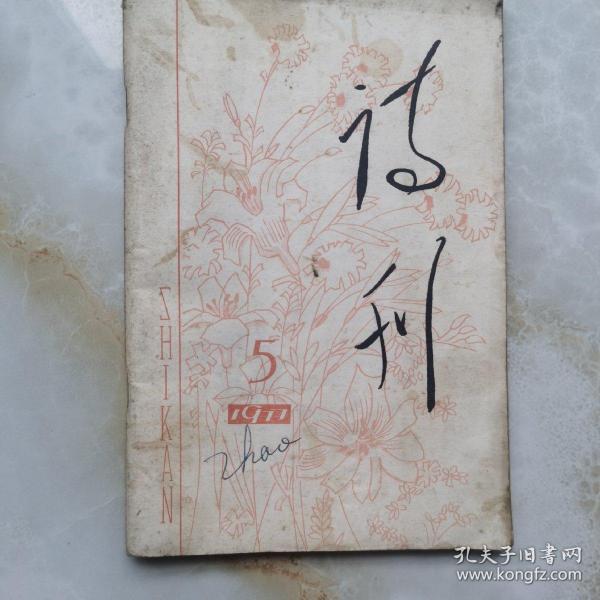 诗刊
SHIKAN
5
1977
zhao
孔夫子旧书网
www.kongfz.com